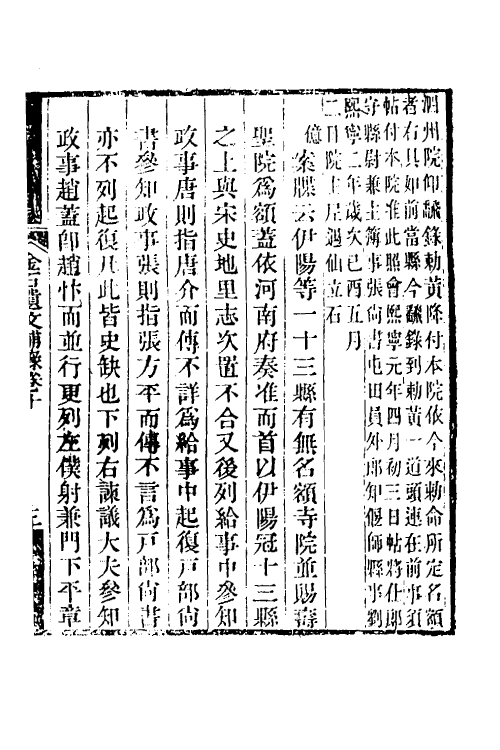 泗州院仰謄錄勅黃降付本院依今來勅命所定名額
者右具如前當縣今謄錄到勅黃一道頭連在前事須
帖付本院准此照會熙寧元年四月初三日帖將仕郎
守縣尉兼主簿事張尚書屯田員外郎知偃師縣事劉
熙寧二年歲次己酉五月
二日院主尼遇仙立石
億
案牒云伊陽等一十三縣有無名額寺院並賜壽
聖院爲額蓋依河南府奏准而首以伊陽冠十三縣
之上與宋史地里志次置不合又後列給事中參知
政事唐則指唐介而傳不詳爲給事中起復戸部尙
書參知政事張則指張方平而傳不言爲戸部尙書
亦不列起復凡此皆史缺也下列右諫議大夫參知
政事趙蓋卽趙忭而並行更列左僕射兼門下平章
金石遺文補錄卷十
三